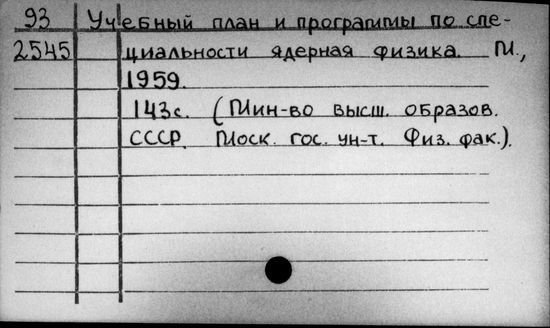 93 Учебный план и программы по спе-
2545 циальности ядерная физика. М.,
1959.
143с. (Мин-во высш. образов.
СССР. Моск. гос. ун-т. Физ. фак.).